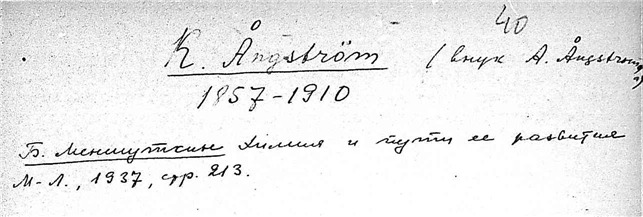 40
K. Ångström (внук A. Ångström'а)
1857-1910
Б. Меншуткин Химия и пути ее развития
М-Л., 1937, стр. 213.